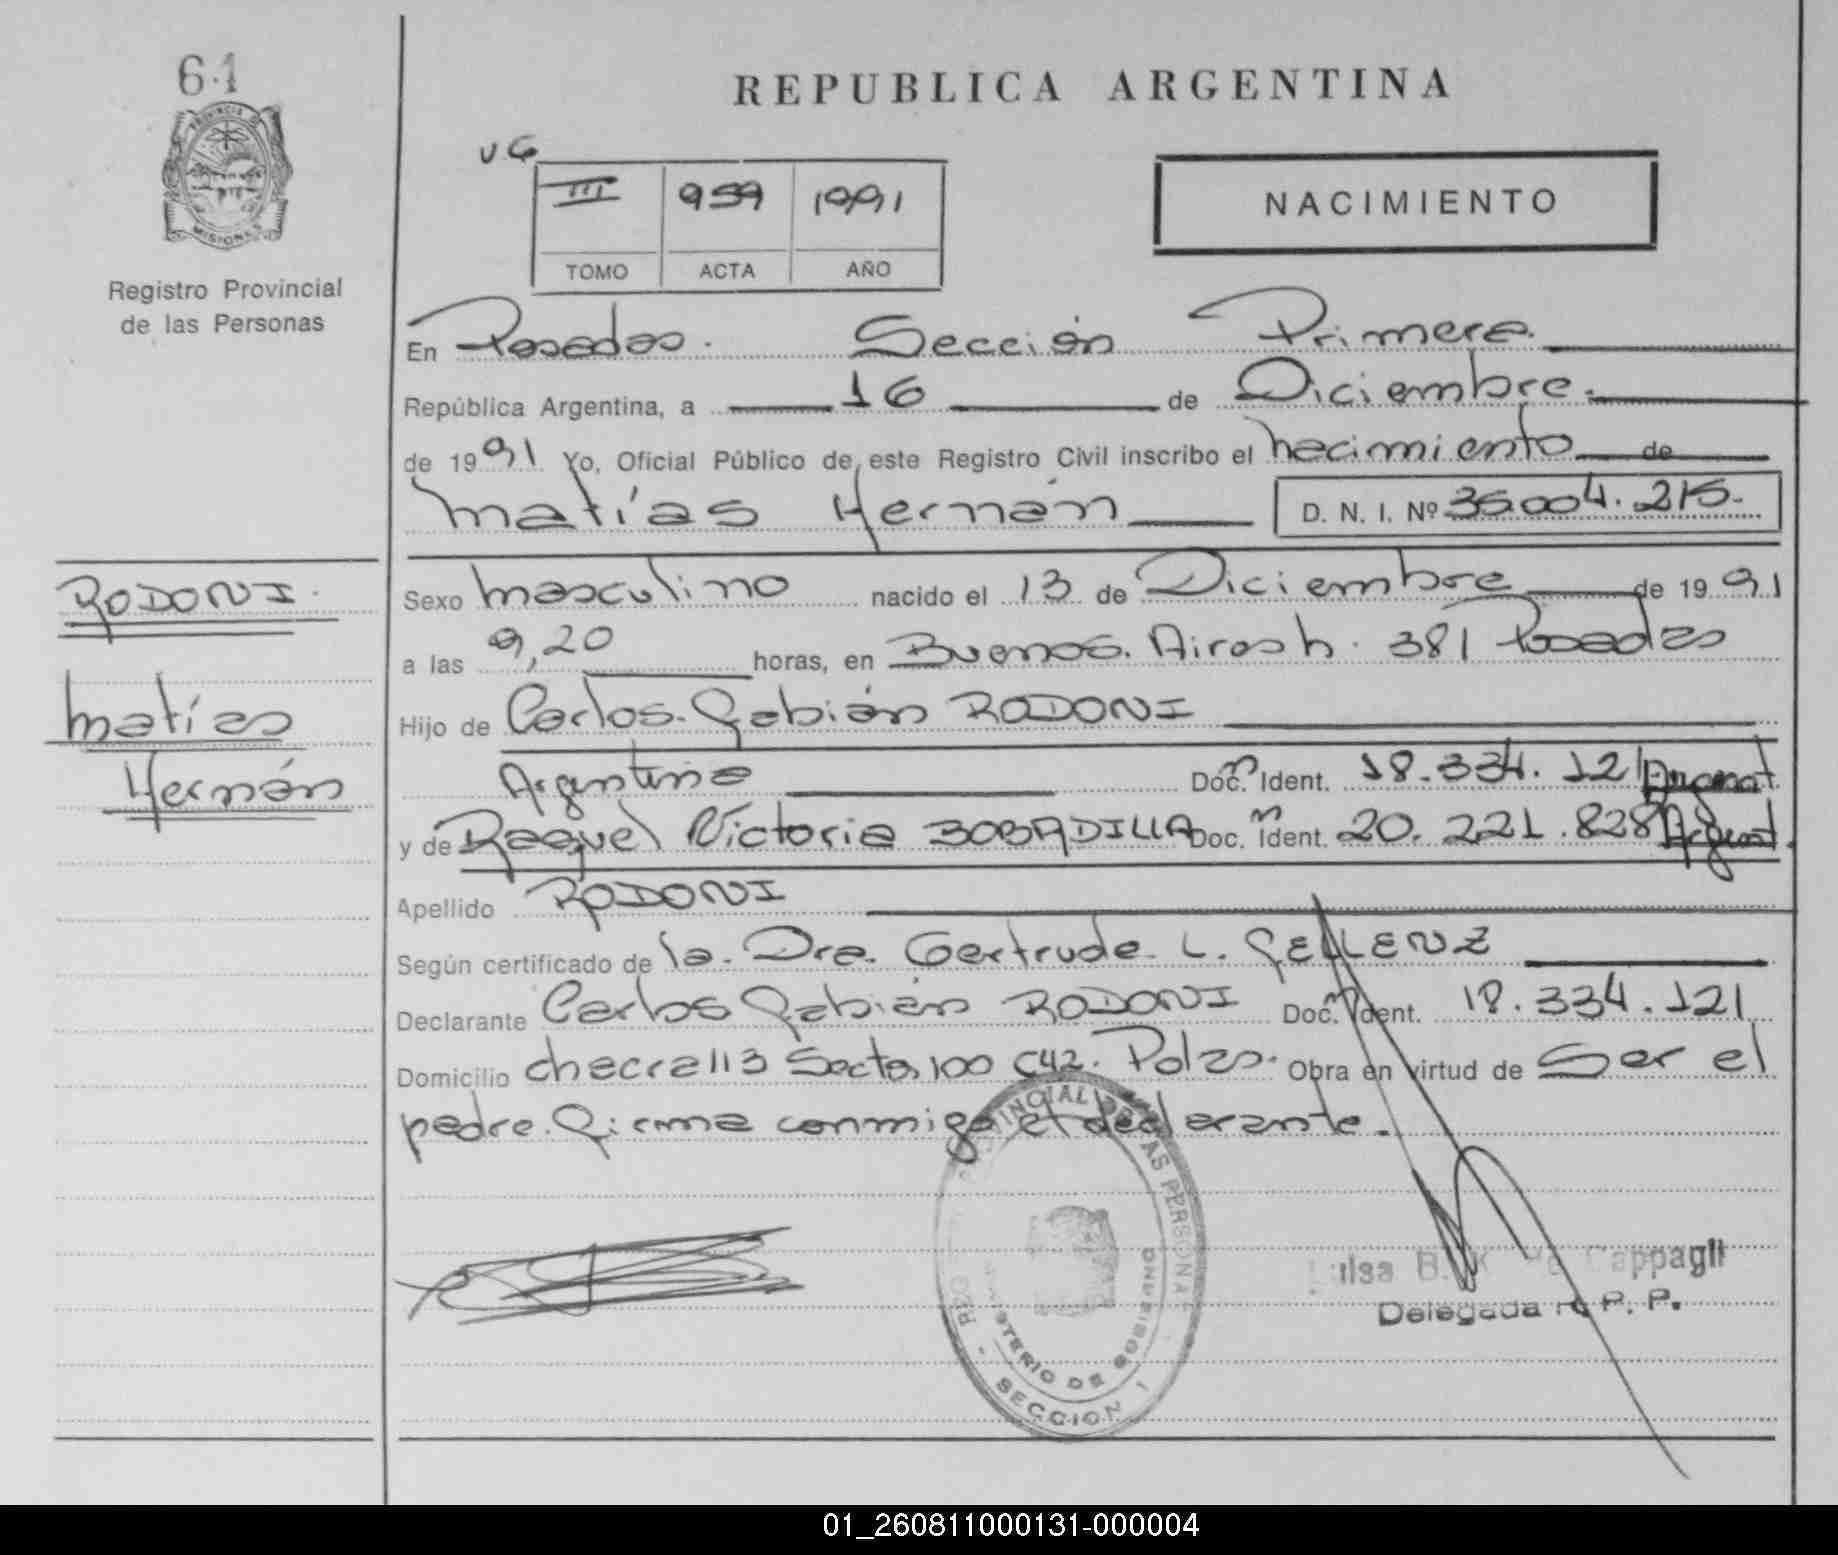 61
REPUBLICA ARGENTINA
PROVINCIA DE
MISIONES
Registro Provincial
de las Personas
V.G
III 959 1991
TOMO ACTA AÑO
NACIMIENTO
En Posadas. Sección Primera.
República Argentina, a 16 de Diciembre.
de 1991 Yo, Oficial Público de este Registro Civil inscribo el nacimiento de
Matías Hernán D. N. I. Nº 36.004.215.
RODONI.
Matías
Hernán
Sexo masculino nacido el 13 de Diciembre de 1991
a las 9,20 horas, en Buenos. Aires h. 381 Posadas
Hijo de Carlos. Fabián RODONI
Argentina Doc. Ident. 18.334.121 Argent
y de Raquel Victoria BOBADILLA Doc. Ident. 20.221.828 Argent.
Apellido RODONI
Según certificado de la. Dra. Gertrude. L. GELLENZ
Declarante Carlos Fabián RODONI Doc. Ident. 18.334.121
Domicilio chacra 113 Secto. 100 C42. Pdas. Obra en virtud de Ser el
padre. Firma conmigo el declarante.
PROVINCIAL DE LAS PERSONAS
MINISTERIO DE GOBIERNO
SECCION 1
Luisa B. K de Cappagli
Delegada R. P. P.
01_260811000131-000004